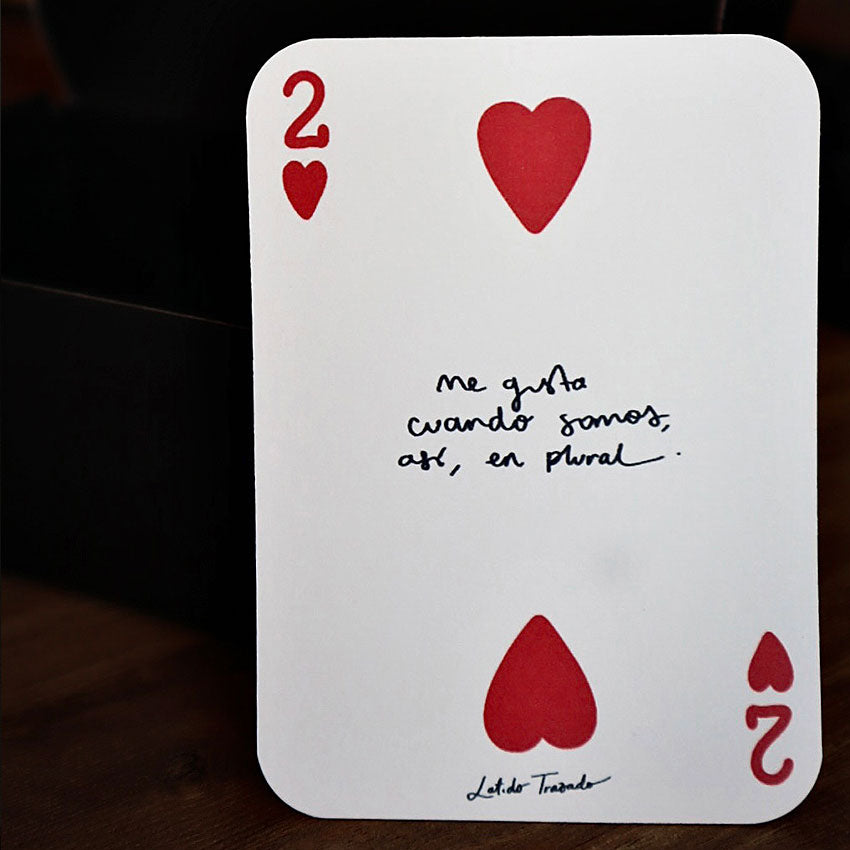 2
me gusta
cuando somos,
así, en plural.
Latido Trazado
2